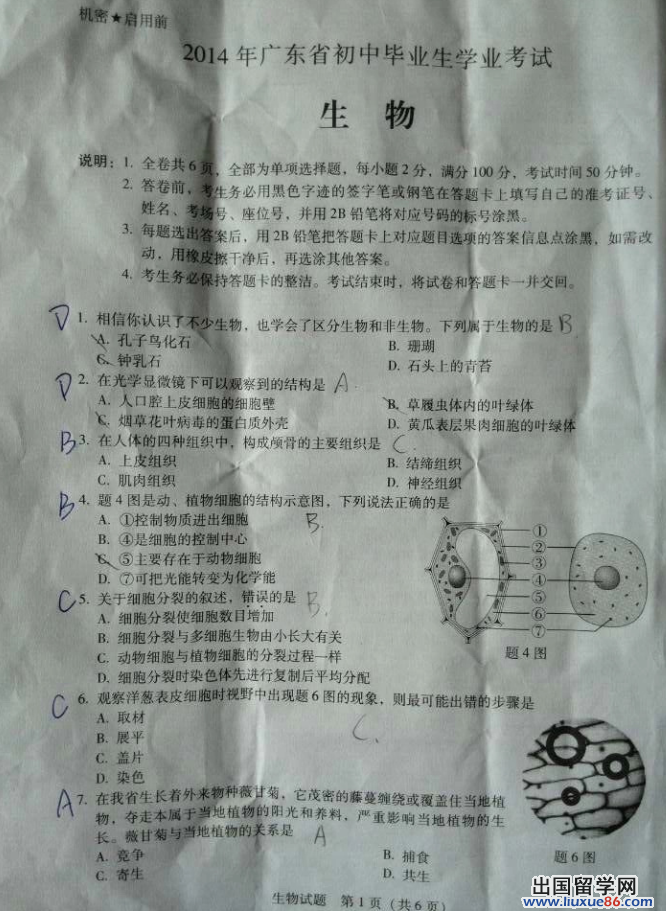 机密★启用前
2014年广东省初中毕业生学业考试
生 物
说明：1. 全卷共6页，全部为单项选择题，每小题2分，满分100分，考试时间50分钟。
2. 答卷前，考生务必用黑色字迹的签字笔或钢笔在答题卡上填写自己的准考证号、
姓名、考场号、座位号，并用2B铅笔将对应号码的标号涂黑。
3. 每题选出答案后，用2B铅笔把答题卡上对应题目选项的答案信息点涂黑，如需改
动，用橡皮擦干净后，再选涂其他答案。
4. 考生务必保持答题卡的整洁。考试结束时，将试卷和答题卡一并交回。
D 1. 相信你认识了不少生物，也学会了区分生物和非生物。下列属于生物的是 B
A. 孔子鸟化石 B. 珊瑚
C. 钟乳石 D. 石头上的青苔
D 2. 在光学显微镜下可以观察到的结构是 A
A. 人口腔上皮细胞的细胞壁 B. 草履虫体内的叶绿体
C. 烟草花叶病毒的蛋白质外壳 D. 黄瓜表层果肉细胞的叶绿体
B 3. 在人体的四种组织中，构成颅骨的主要组织是 C.
A. 上皮组织 B. 结缔组织
C. 肌肉组织 D. 神经组织
B 4. 题4图是动、植物细胞的结构示意图，下列说法正确的是
A. ①控制物质进出细胞 B.
B. ④是细胞的控制中心
C. ⑤主要存在于动物细胞
D. ⑦可把光能转变为化学能
①
②
③
④
⑤
⑥
⑦
题4图
C 5. 关于细胞分裂的叙述，错误的是 B.
A. 细胞分裂使细胞数目增加
B. 细胞分裂与多细胞生物由小长大有关
C. 动物细胞与植物细胞的分裂过程一样
D. 细胞分裂时染色体先进行复制后平均分配
C 6. 观察洋葱表皮细胞时视野中出现题6图的现象，则最可能出错的步骤是
A. 取材
B. 展平 C.
C. 盖片
D. 染色
A 7. 在我省生长着外来物种薇甘菊，它茂密的藤蔓缠绕或覆盖住当地植
物，夺走本属于当地植物的阳光和养料，严重影响当地植物的生
长。薇甘菊与当地植物的关系是 A
A. 竞争 B. 捕食
C. 寄生 D. 共生
题6图
生物试题 第1页（共6页）
出国留学网
www.liuxue86.com